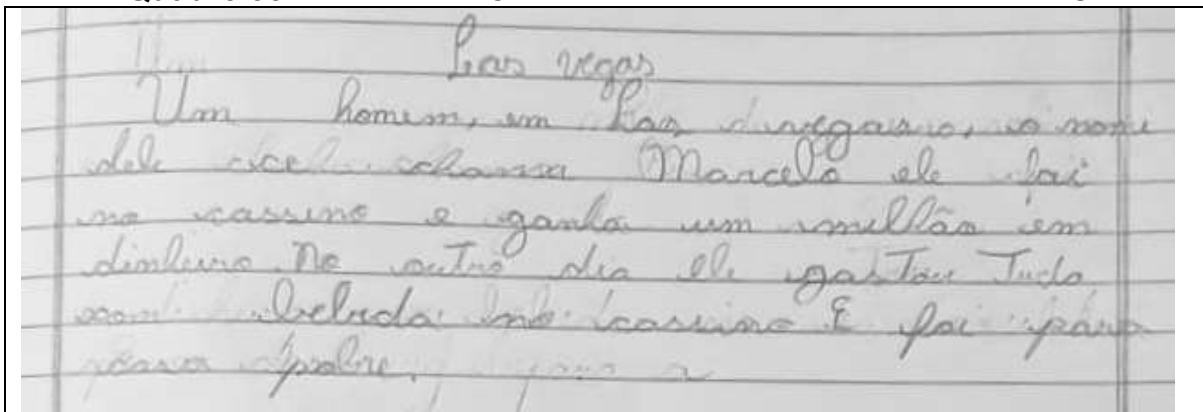 Las vegas
Um homem, em Las vegas, o nome
dele se chama Marcelo ele foi
no cassino e ganha um milhão em
dinheiro. No outro dia ele gastou Tudo
com bebida no cassino E foi para
casa pobre.